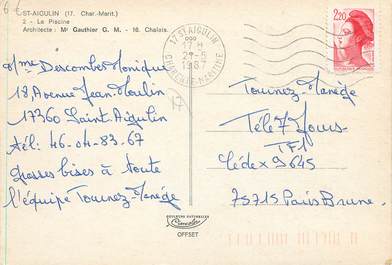 6 €
ST-AIGULIN (17. Char.-Marit.)
2 - La Piscine
Architecte : Mr Gauthier G. M. - 16. Chalais.
Mme Descombes Monique
18, Avenue Jean Moulin
17360 Saint Aigulin
tél: 46-04-83-67
grosses bises à toute
l'équipe Tournez-Manège
17 ST AIGULIN
17 H
27-5
1987
CHARENTE-MARITIME
2,20
Tournez-Manège
Télé 7 Jours
TF1
Cédex 9645
75715 Paris Brune.
17
COULEURS NATURELLES
OFFSET